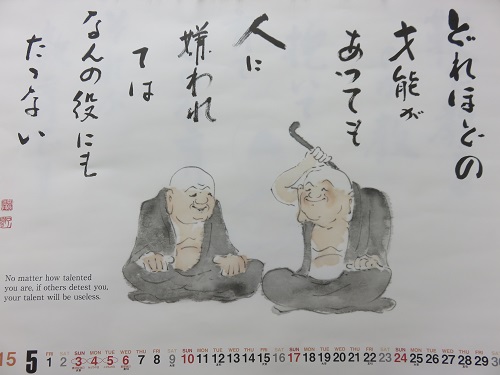 どれほどの
才能が
あっても
人に
嫌われ
ては
なんの役にも
たたない
No matter how talented
you are, if others detest you,
your talent will be useless.
15 5
FRI SAT SUN MON TUE WED THU FRI SAT SUN MON TUE WED THU FRI SAT SUN MON TUE WED THU FRI SAT SUN MON TUE WED THU FRI
1 2 3 4 5 6 7 8 9 10 11 12 13 14 15 16 17 18 19 20 21 22 23 24 25 26 27 28 29 30